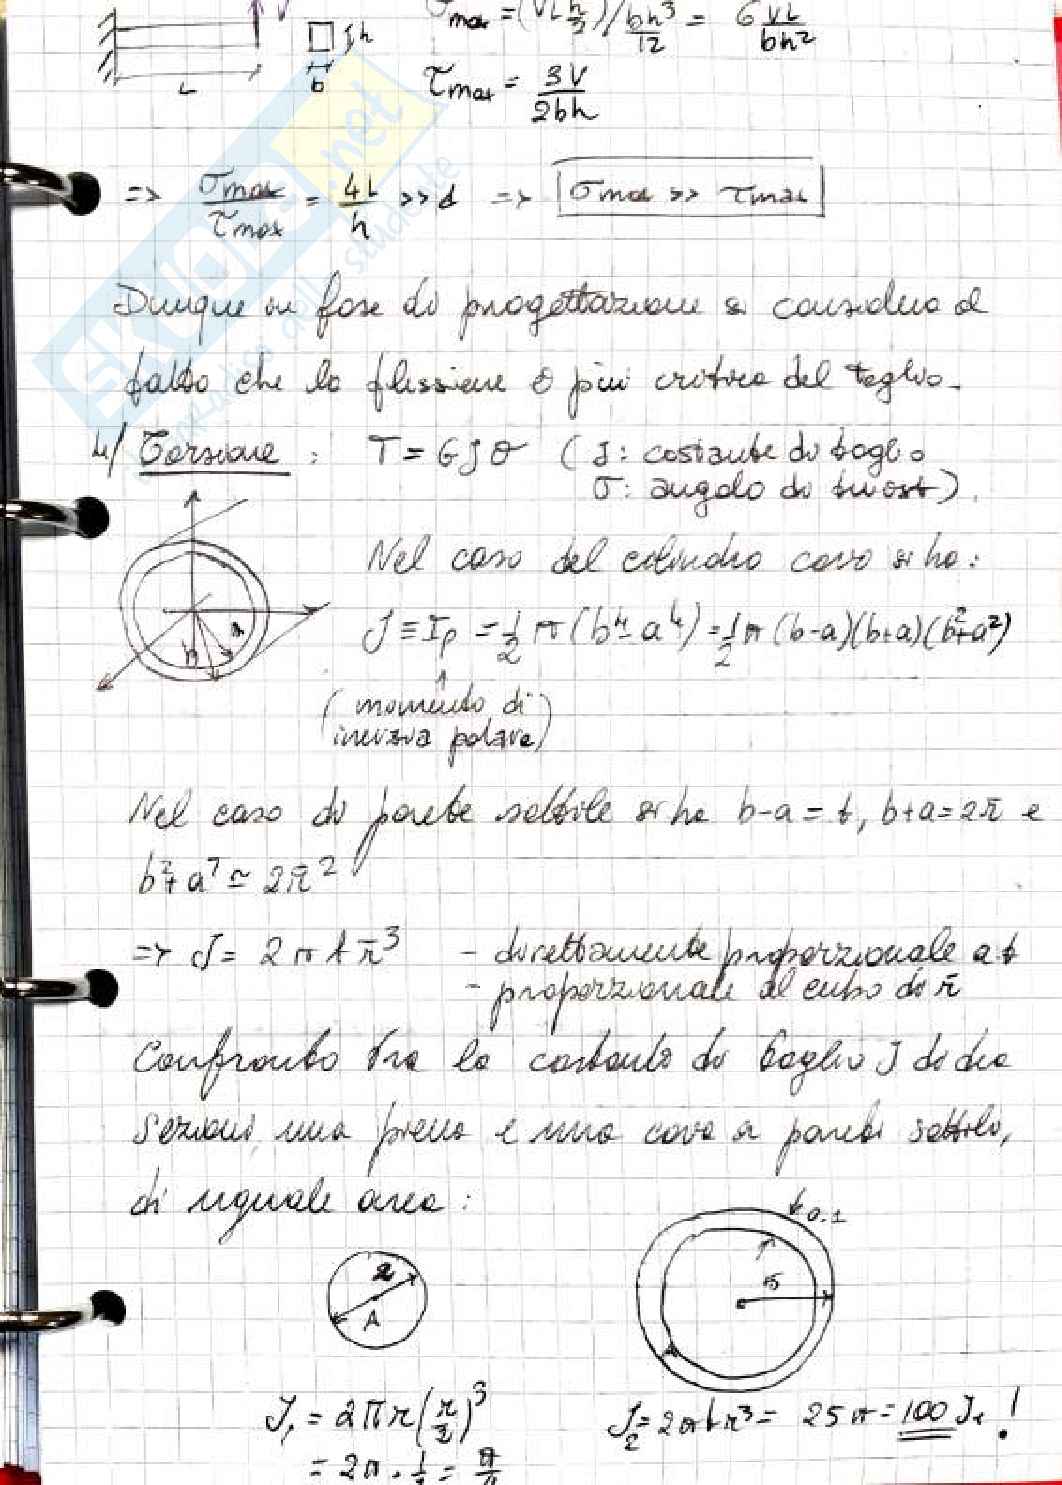 V
h
b
L
σmax = (VL h/2) / bh³/12 = 6 VL/bh²
τmax = 3V/2bh
=> σmax/τmax = 4L/h >> 1 => σmax >> τmax
Dunque in fase di progettazione si considera il
fatto che la flessione è più critica del taglio.
4/ Torsione : T = GJθ (J: costante di taglio
σ: angolo di twist).
Nel caso del cilindro cavo si ha:
J ≡ Ip = 1/2 π (b⁴ - a⁴) = 1/2 π (b-a)(b+a)(b²+a²)
a
b
(momento di
inerzia polare)
Nel caso di parete sottile si ha b-a = t, b+a = 2r̄ e
b²+a² ≃ 2r̄²
=> J = 2πt r̄³ - direttamente proporzionale a t
- proporzionale al cubo di r̄
Confronto tra la costante di taglio J di due
sezioni, una piena e una cava a pareti sottili,
di uguale area :
0.1
2
A
5
J₁ = 2πr(r/2)³
J₂ = 2πtr³ = 25π = 100 J₁ !
= 2π ·
SKUOLA.net